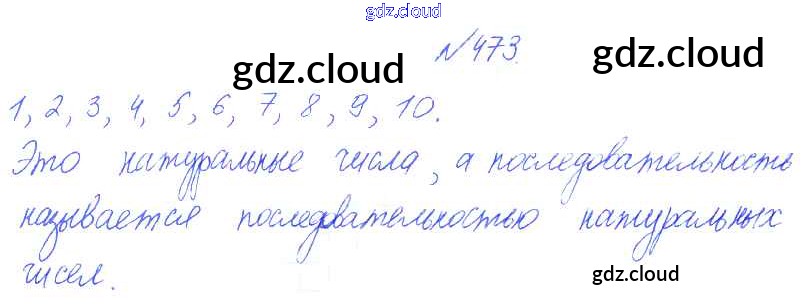 gdz.cloud
№473.
gdz.cloud
gdz.cloud
1, 2, 3, 4, 5, 6, 7, 8, 9, 10.
Это натуральные числа, а последовательность
называется последовательностью натуральных
чисел.
gdz.cloud